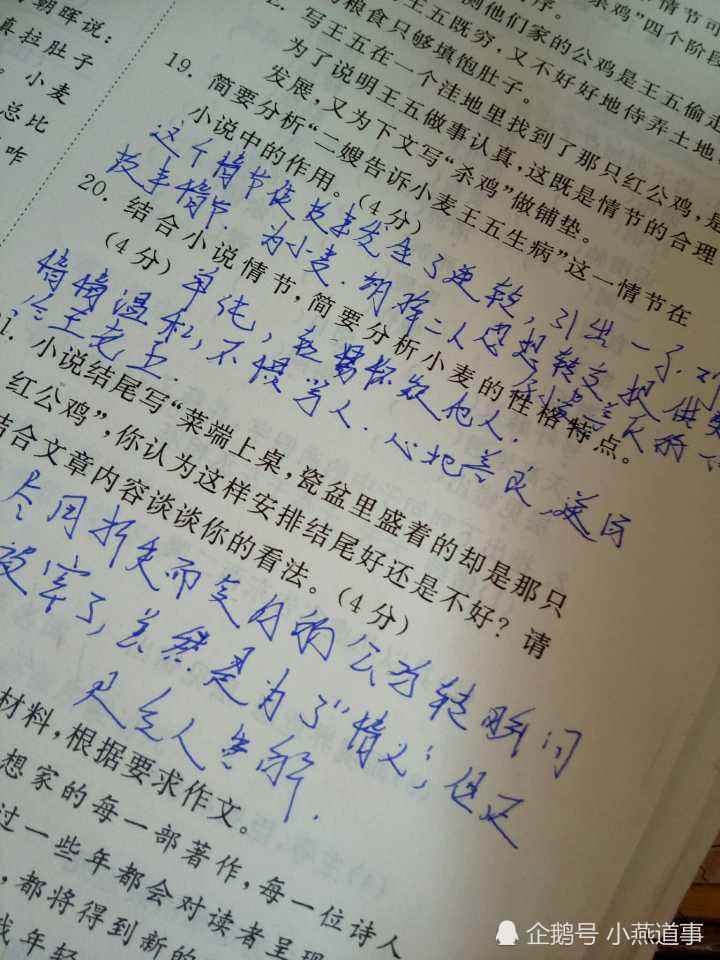 朝晖说：
真拉肚子
。小麦
总比
咋
杀鸡”四个阶段
测他们家的公鸡是王五偷走
王五既穷，又不好好地侍弄土地
的粮食只够填饱肚子。
写王五在一个洼地里找到了那只红公鸡，是
为了说明王五做事认真，这既是情节的合理
发展，又为下文写“杀鸡”做铺垫。
19. 简要分析“二嫂告诉小麦王五生病”这一情节在
小说中的作用。（4分）
这个情节使故事发生了逆转，引出一
故事情节。为小麦、明辉二人思想转变提供
20. 结合小说情节，简要分析小麦的性格特点。
（4分）
单纯，轻易怀疑他人。
温和，不惯着人。心地善良
21. 小说结尾写“菜端上桌，瓷盆里盛着的却是那只
红公鸡”，你认为这样安排结尾好还是不好？请
结合文章内容谈谈你的看法。（4分）
而复得的公鸡转瞬间
被宰了，虽然是为了“情义”，但还
是令人费解。
材料，根据要求作文。
想家的每一部著作，每一位诗人
过一些年都会对读者呈现
，都将得到新的
我年轻
企鹅号 小燕道事